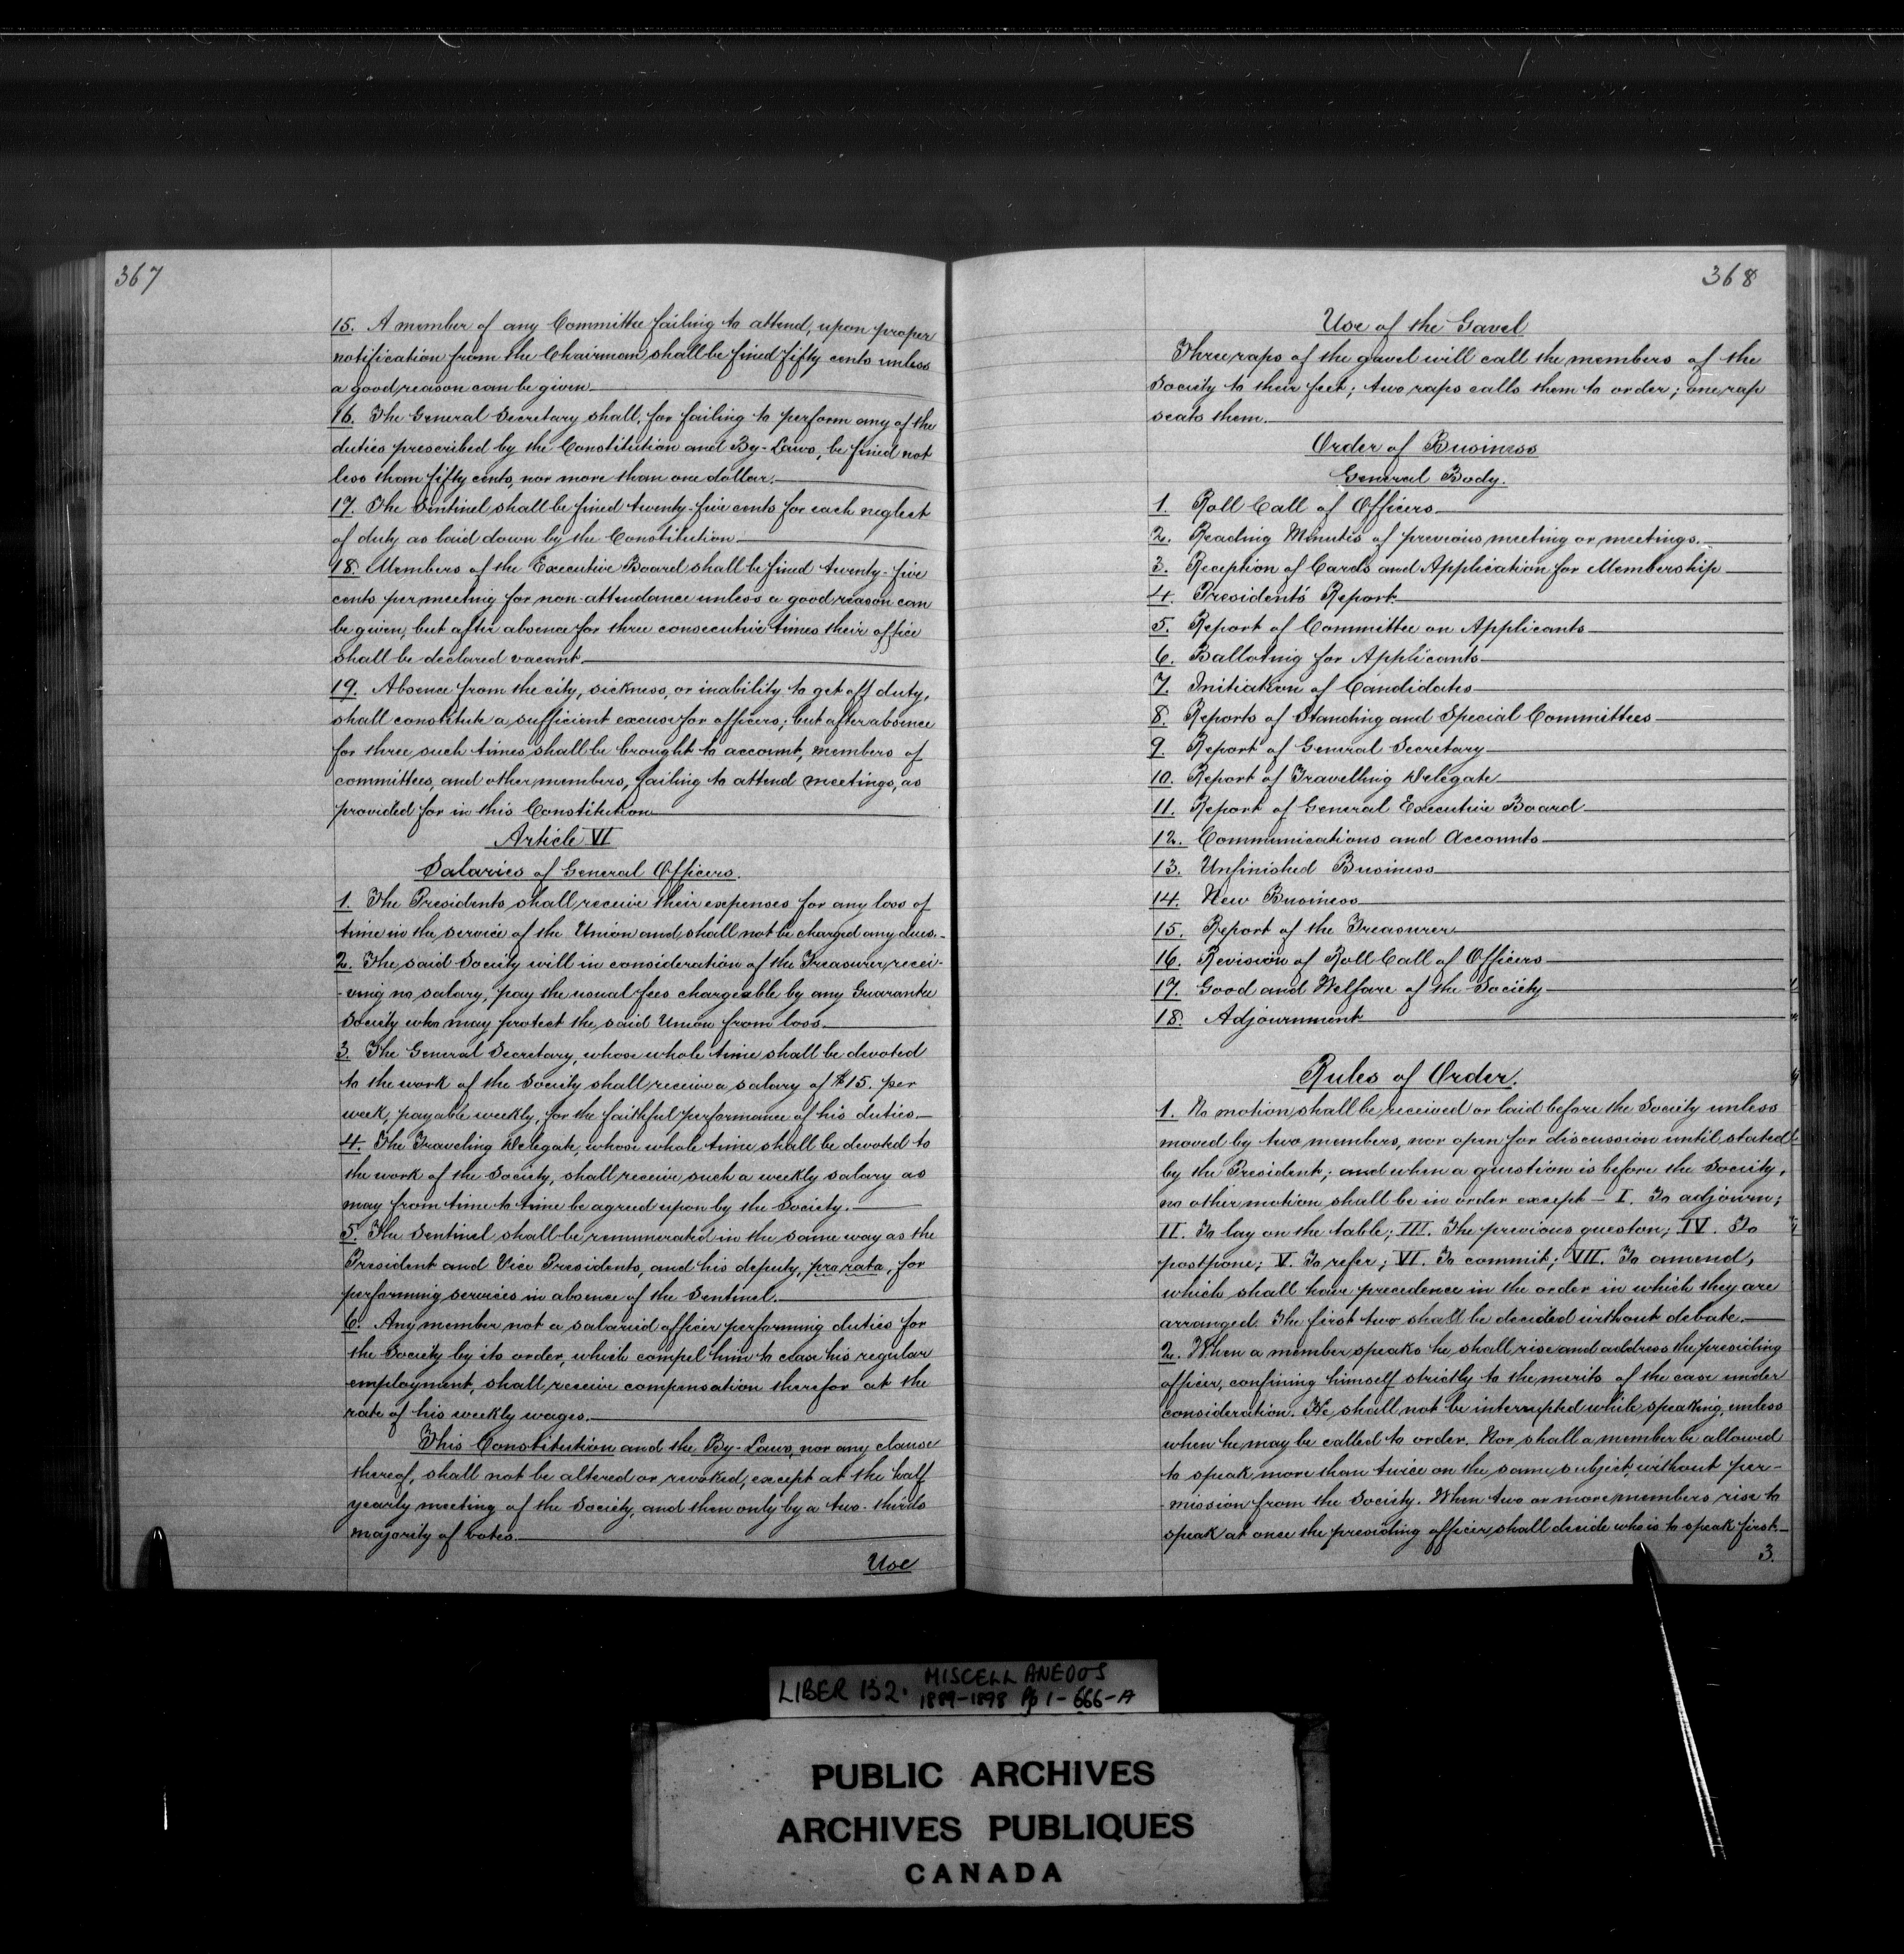 367
15. A member of any Committee failing to attend, upon proper
notification from the Chairman shall be fined fifty cents unless
a good reason can be given
16. The General Secretary shall, for failing to perform any of the
duties prescribed by the Constitution and By-Laws, be fined not
less than fifty cents, nor more than one dollar.
17. The Sentinel shall be fined twenty-five cents for each neglect
of duty as laid down by the Constitution
18. Members of the Executive Board shall be fined twenty-five
cents per meeting for non-attendance unless a good reason can
be given, but after absence for three consecutive times their office
shall be declared vacant
19. Absence from the city, sickness, or inability to get off duty,
shall constitute a sufficient excuse for officers; but after absence
for three such times shall be brought to account, members of
committees, and other members, failing to attend meetings, as
provided for in this Constitution
Article VI
Salaries of General Officers.
1. The Presidents shall receive their expenses for any loss of
time in the service of the Union and shall not be charged any dues.
2. The said Society will in consideration of the Treasurer, recei-
-ving no salary, pay the usual fees chargeable by any Guarantee
Society who may protect the said Union from loss.
3. The General Secretary, whose whole time shall be devoted
to the work of the Society shall receive a salary of $15. per
week, payable weekly, for the faithful performance of his duties
4. The Traveling Delegate, whose whole time shall be devoted to
the work of the Society, shall receive such a weekly salary as
may from time to time be agreed upon by the Society.
5. The Sentinel shall be remunerated in the same way as the
President and Vice Presidents, and his deputy, pro rata, for
performing services in absence of the Sentinel.
6. Any member not a salaried officer performing duties for
the Society by its order, which compel him to close his regular
employment, shall receive compensation therefor at the
rate of his weekly wages.
This Constitution and the By-Laws, nor any clause
thereof, shall not be altered or revoked, except at the half
yearly meeting of the Society, and then only by a two-thirds
majority of votes.
Use
368
Use of the Gavel
Three raps of the gavel will call the members of the
Society to their feet; two raps calls them to order; one rap
seats them.
Order of Business
General Body.
1. Roll Call of Officers
2. Reading Minutes of previous meeting or meetings.
3. Reception of Cards and Application for Membership
4. President's Report
5. Report of Committee on Applicants
6. Balloting for Applicants
7. Initiation of Candidates
8. Reports of Standing and Special Committees
9. Report of General Secretary
10. Report of Travelling Delegate
11. Report of General Executive Board
12. Communications and Accounts
13. Unfinished Business
14. New Business
15. Report of the Treasurer
16. Revision of Roll Call of Officers
17. Good and Welfare of the Society
18. Adjournment
Rules of Order.
1. No motion shall be received or laid before the Society unless
moved by two members, nor open for discussion until stated
by the President; and when a question is before the Society,
no other motion shall be in order except - I. To adjourn;
II. To lay on the table; III. The previous queston; IV. To
postpone; V. To refer; VI. To commit; VII. To amend,
which shall have precedence in the order in which they are
arranged. The first two shall be decided without debate.
2. When a member speaks he shall rise and address the presiding
officer, confining himself strictly to the merits of the case under
consideration. He shall not be interrupted while speaking, unless
when he may be called to order. Nor shall a member be allowed
to speak more than twice on the same subject, without per-
-mission from the Society. When two or more members rise to
speak at once the presiding officer shall decide who is to speak first.
3.
LIBER 132. MISCELLANEOUS
1889-1898 Pp 1-666-A
PUBLIC ARCHIVES
ARCHIVES PUBLIQUES
CANADA